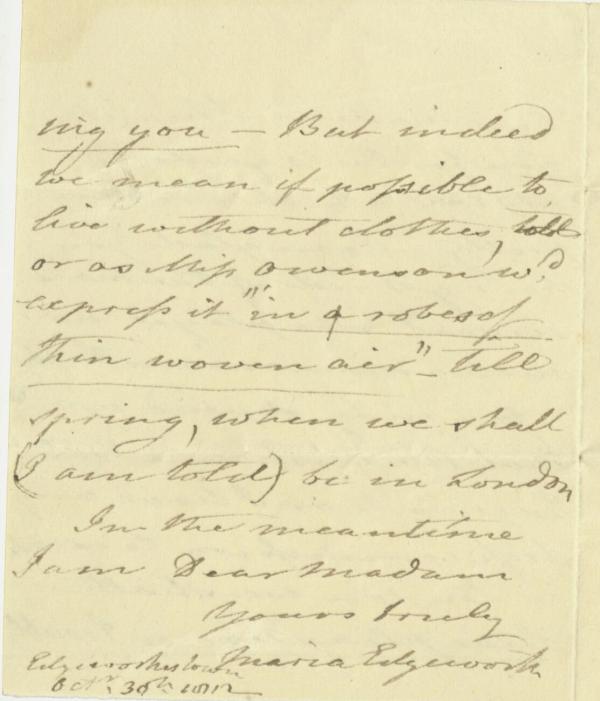 ing you — But indeed
we mean if possible to
live without clothes,
or as Miss Owenson w.d
express it "in a robes of
thin woven air" — till
spring, when we shall
(I am told) be in London
In the meantime
I am Dear Madam
Yours truly
Maria Edgeworth
Edgeworthstown
Octr. 30th 1812